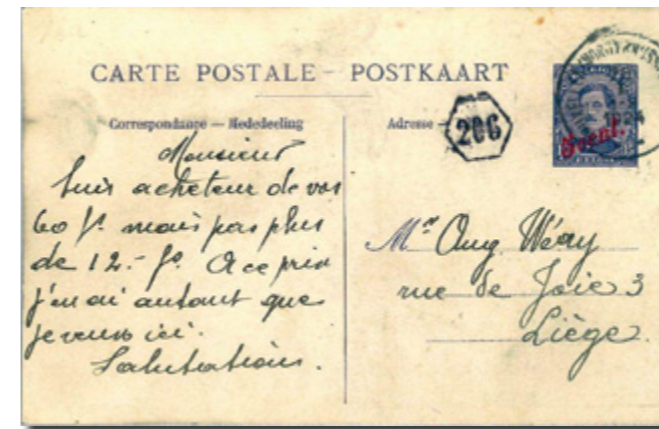 CARTE POSTALE - POSTKAART
Correspondance — Mededeeling
Adresse -
206
5 cent.
Monsieur
Suis acheteur de vos
60 fs. mais pas plus
de 12.- fs. A ce prix
j'en ai autant que
je veux ici.
Salutations.
Mr Aug Wéry
rue de Joie 3
Liège.